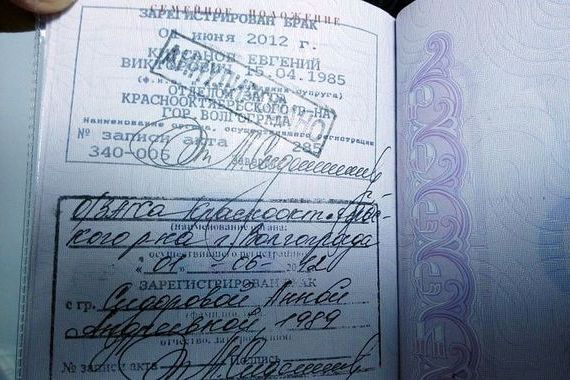 СЕМЕЙНОЕ ПОЛОЖЕНИЕ
ЗАРЕГИСТРИРОВАН БРАК
июня 2012 г.
ЕВГЕНИЙ
15.04.1985
супруга)
КРАСНООКТЯБРЬСКОГО Р-НА
ГОР. ВОЛГОГРАДА
Наименование органа, осуществившего регистрации
№ записи акта 285
340-006
Заверено
О/ЗАГСа Краснооктябрьс-
кого р-на г. Волгограда
(наименование органа,
осуществившего регистрацию)
ЗАРЕГИСТРИРОВАН БРАК
с гр. Сидоровой Анной
Андреевной, 1989
отчество, дата рождения
№ записи акта Подпись